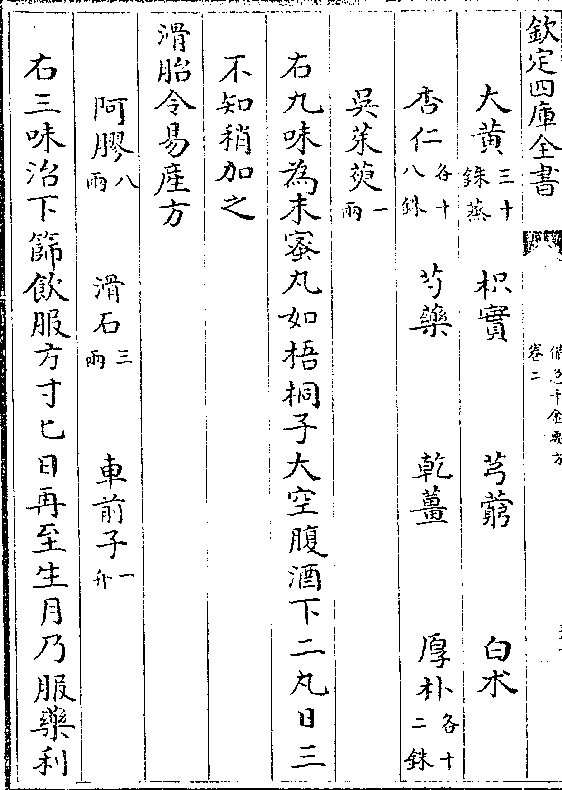 欽定四庫全書
備急千金要方
卷二
大黄三十銖蒸 枳實 芎藭 白术
杏仁各十八銖 芍藥 乾薑 厚朴各十二銖
吳茱萸一兩
右九味為末蜜丸如梧桐子大空腹酒下二丸日三
不知稍加之
滑胎令易産方
阿膠八兩 滑石三兩 車前子一升
右三味治下篩飲服方寸匕日再至生月乃服藥利